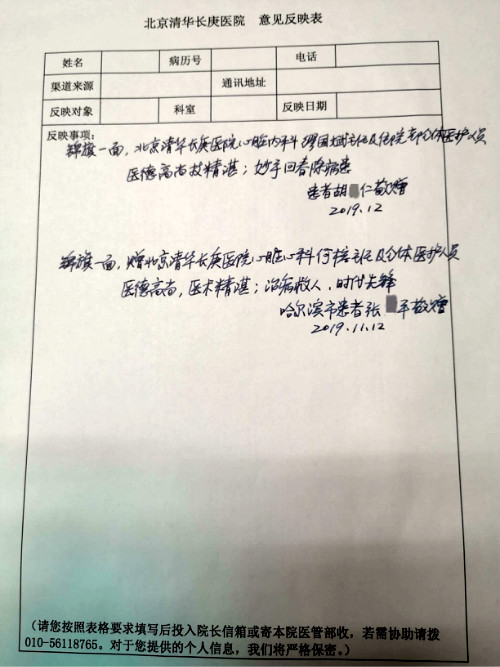 北京清华长庚医院 意见反映表
姓名 病历号 电话
渠道来源 通讯地址
反映对象 科室 反映日期
反映事项:
锦旗一面，北京清华长庚医院心脏内科 主任及住院部全体医护人员
医德高尚技精湛；妙手回春除病患
患者胡 仁敬赠
2019.12
锦旗一面，赠北京清华长庚医院心脏心科何 主任及全体医护人员
医德高尚，医术精湛；治病救人，时代先锋
哈尔滨市患者张 年敬赠
2019.11.12
(请您按照表格要求填写后投入院长信箱或寄本院医管部收，若需协助请拨
010-56118765。对于您提供的个人信息，我们将严格保密。)